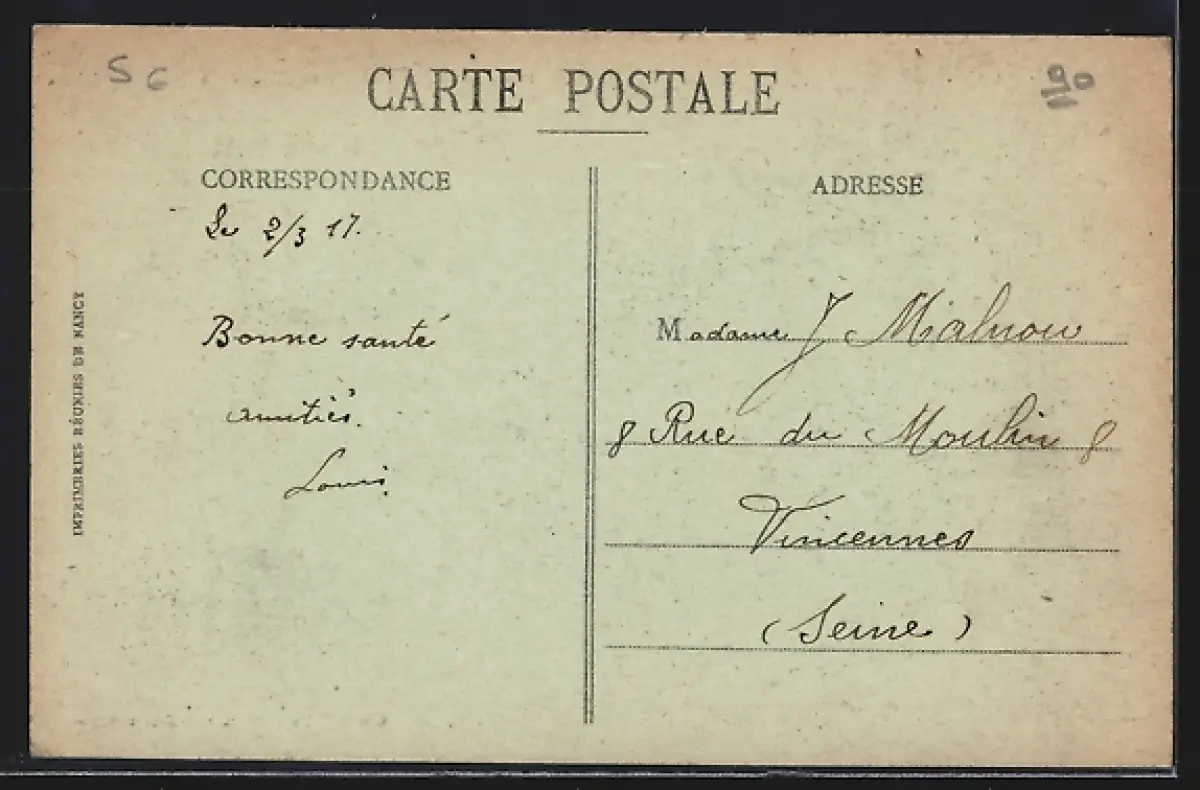 S C
90
CARTE POSTALE
CORRESPONDANCE
Le 2/3 17.
Bonne santé
amitiés.
Louis.
ADRESSE
Madame J Malnou
8 Rue du Moulin 8
Vincennes
(Seine)
IMPRIMERIES RÉUNIES DE NANCY